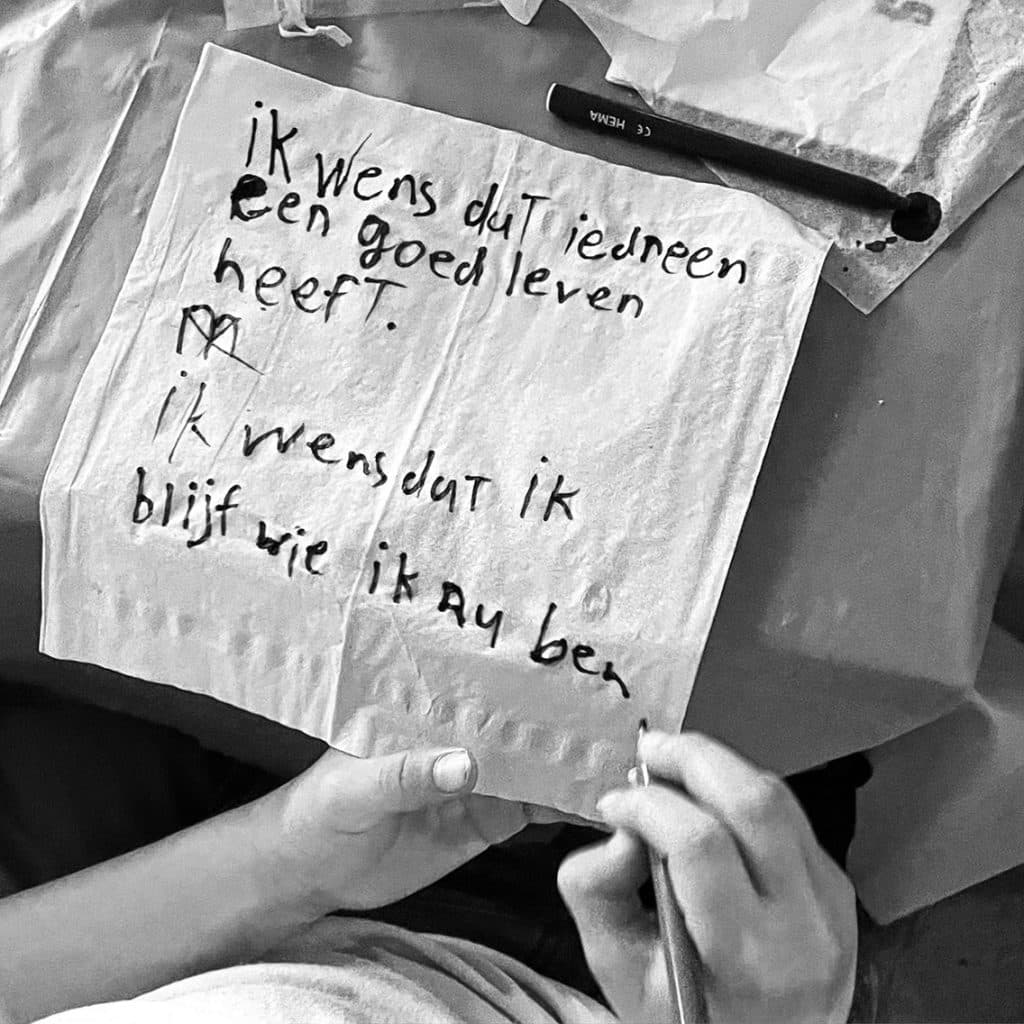 ik wens dat iedreen
een goed leven
heeft.
ik wens dat ik
blijf wie ik nu ben
CE HEMA